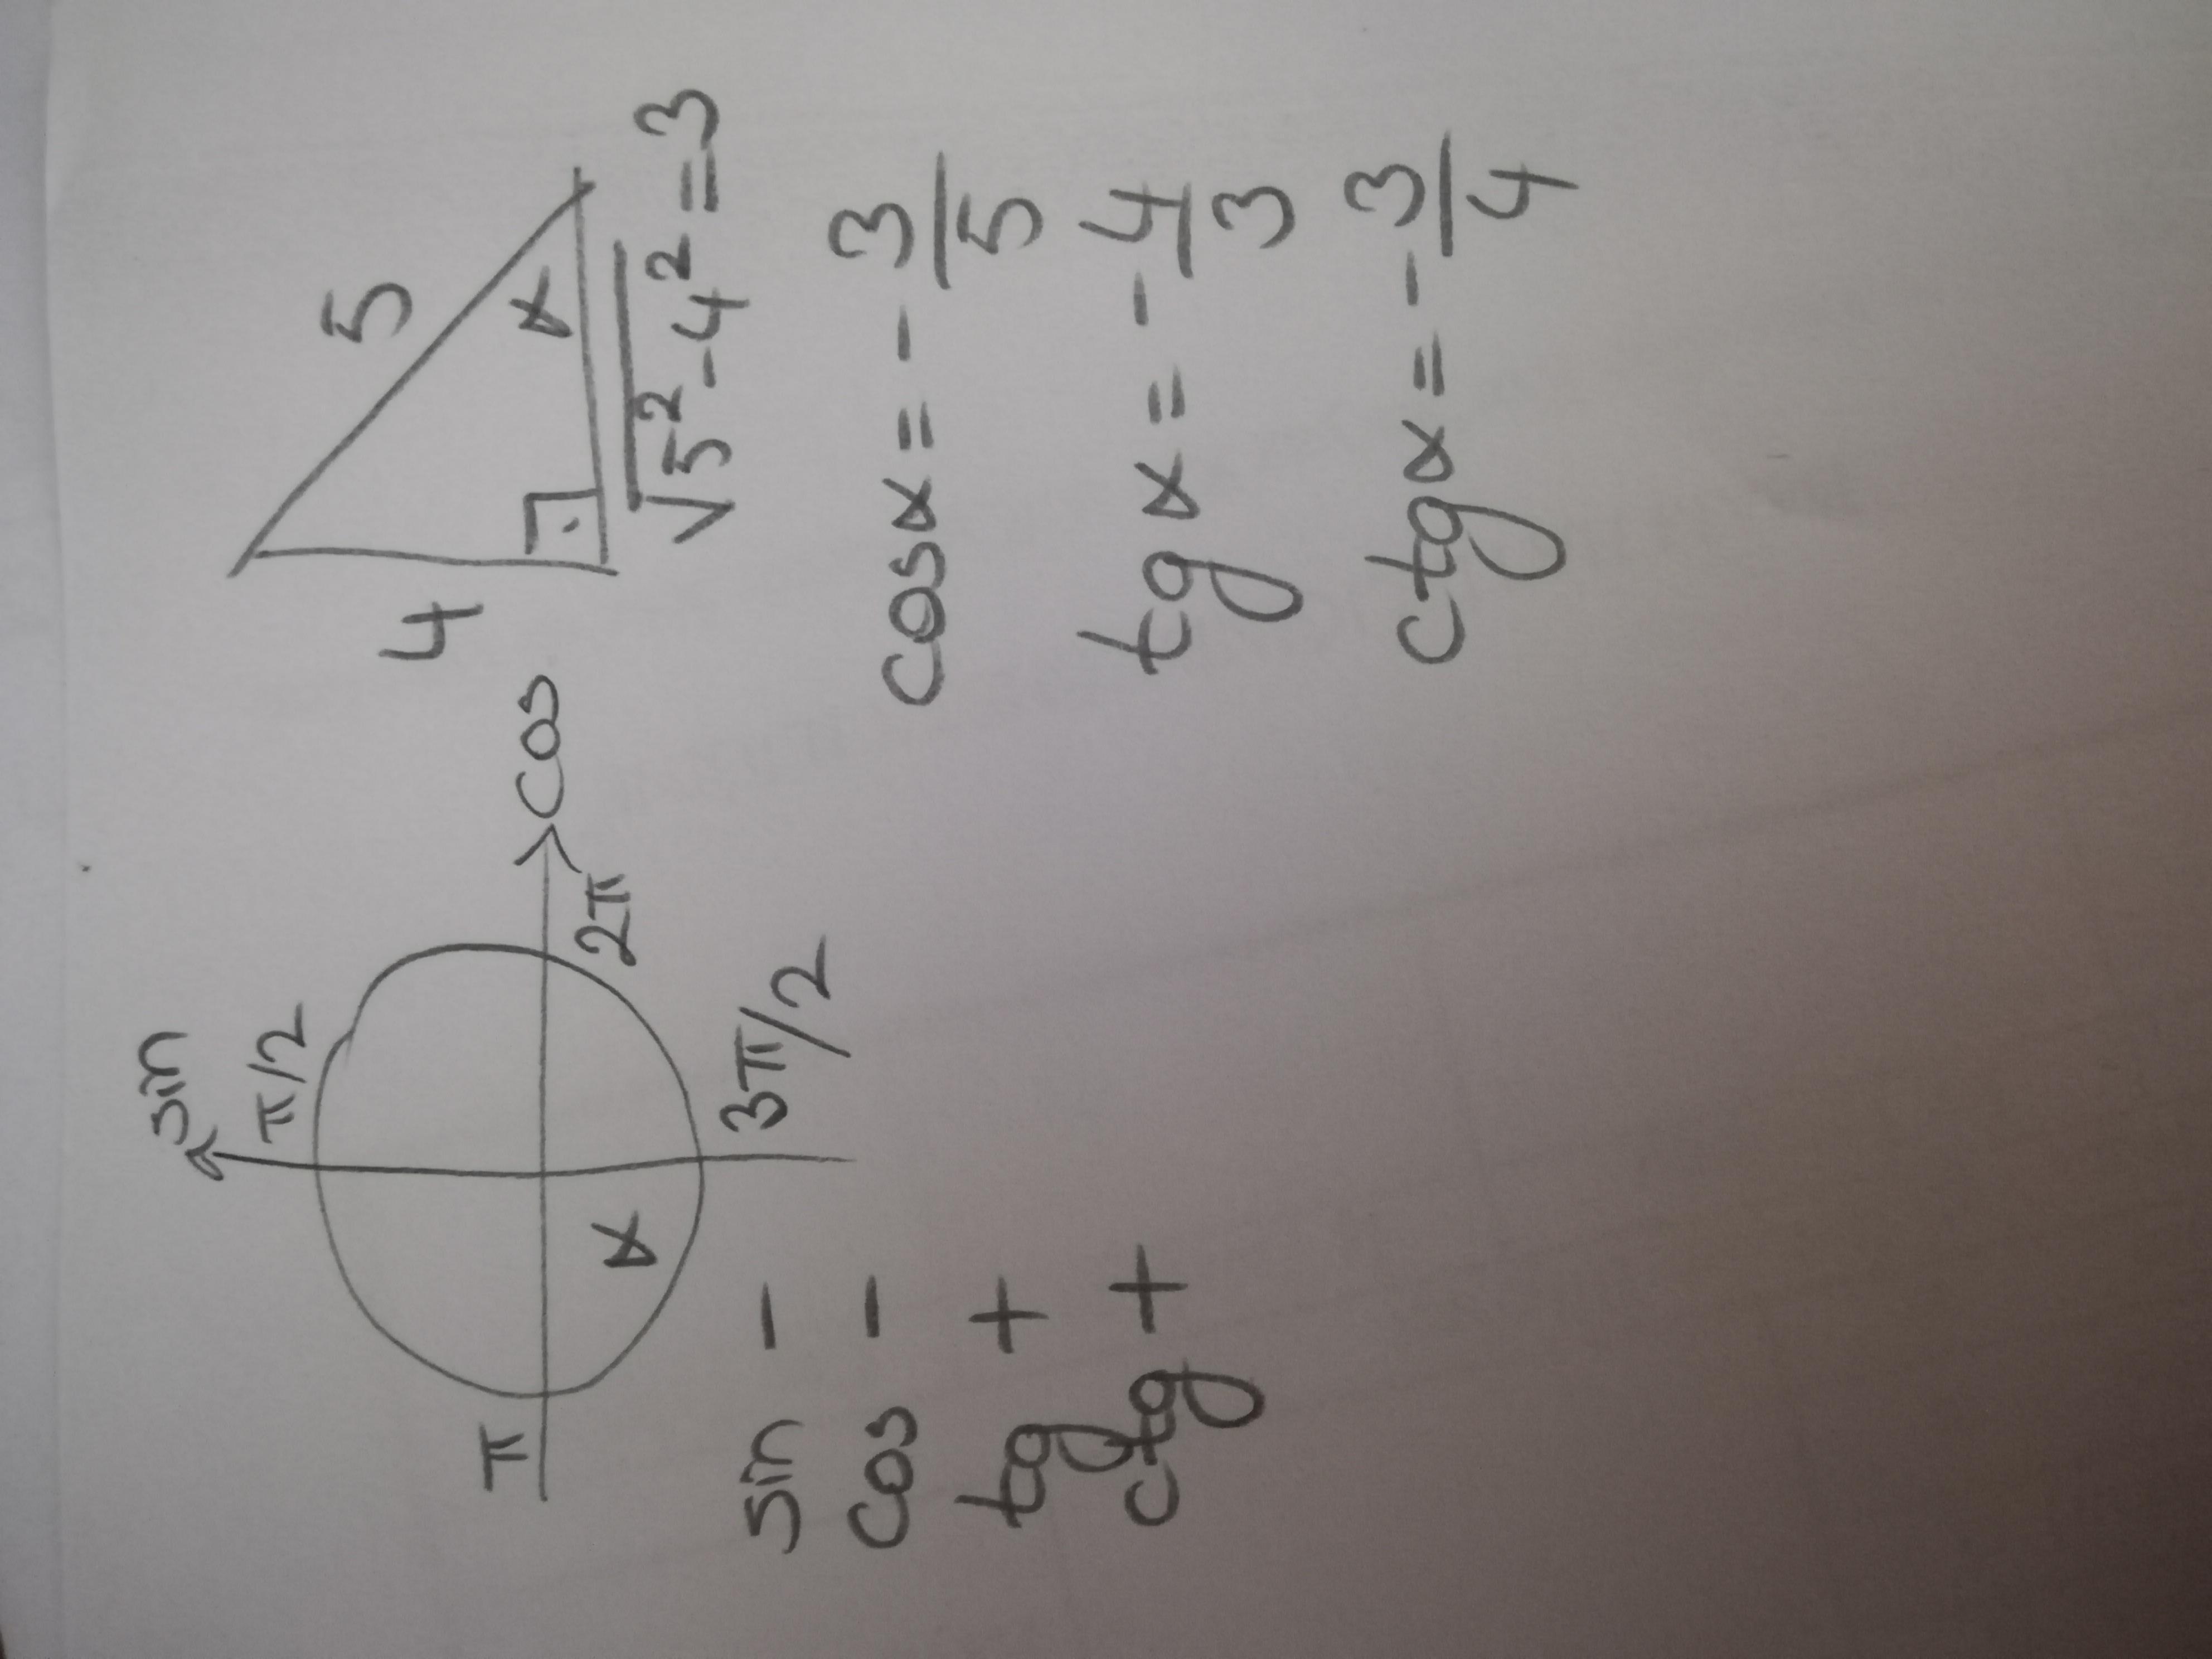 sin
π/2
π
cos
2π
3π/2
α
sin -
cos -
tg +
ctg +
5
4
α
√5²-4² = 3
cosα = - 3/5
tgα = - 4/3
ctgα = - 3/4